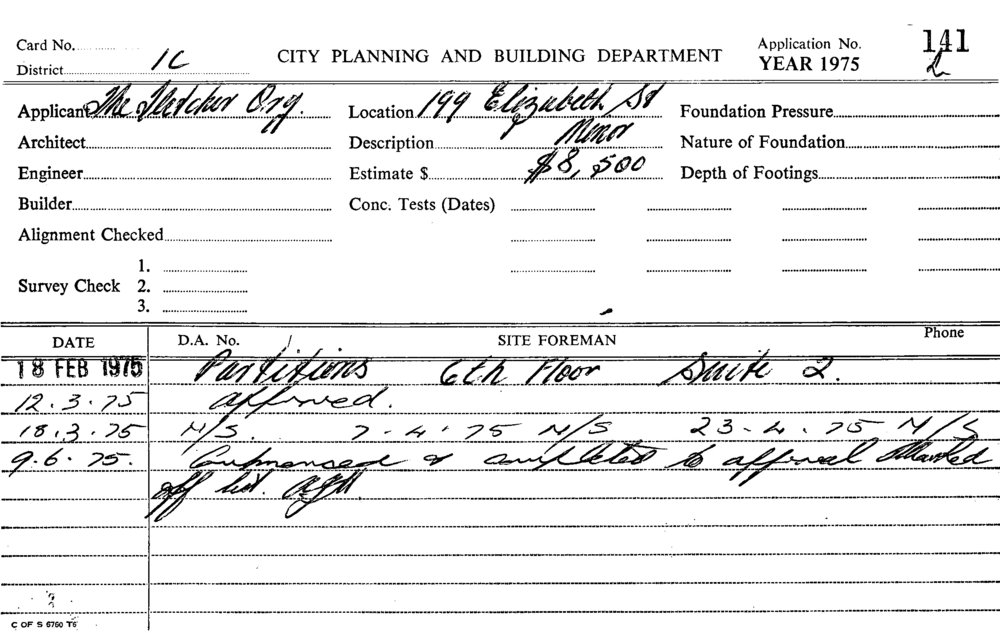 Card No.
District 1C
CITY PLANNING AND BUILDING DEPARTMENT
Application No. 141
YEAR 1975 2
Applicant The Fletcher Org. Location 199 Elizabeth St Foundation Pressure
Architect Description Minor Nature of Foundation
Engineer Estimate $ $8,500 Depth of Footings
Builder Conc. Tests (Dates)
Alignment Checked
1.
Survey Check 2.
3.
DATE D.A. No. SITE FOREMAN Phone
18 FEB 1975 Partitions 6th Floor Suite 2.
12.3.75 approved.
18.3.75 N/S. 7-4-75 N/S 23-4.75 N/S
9.6.75. Commenced & completed to approval Marked
off list.
C OF S 6760 T6